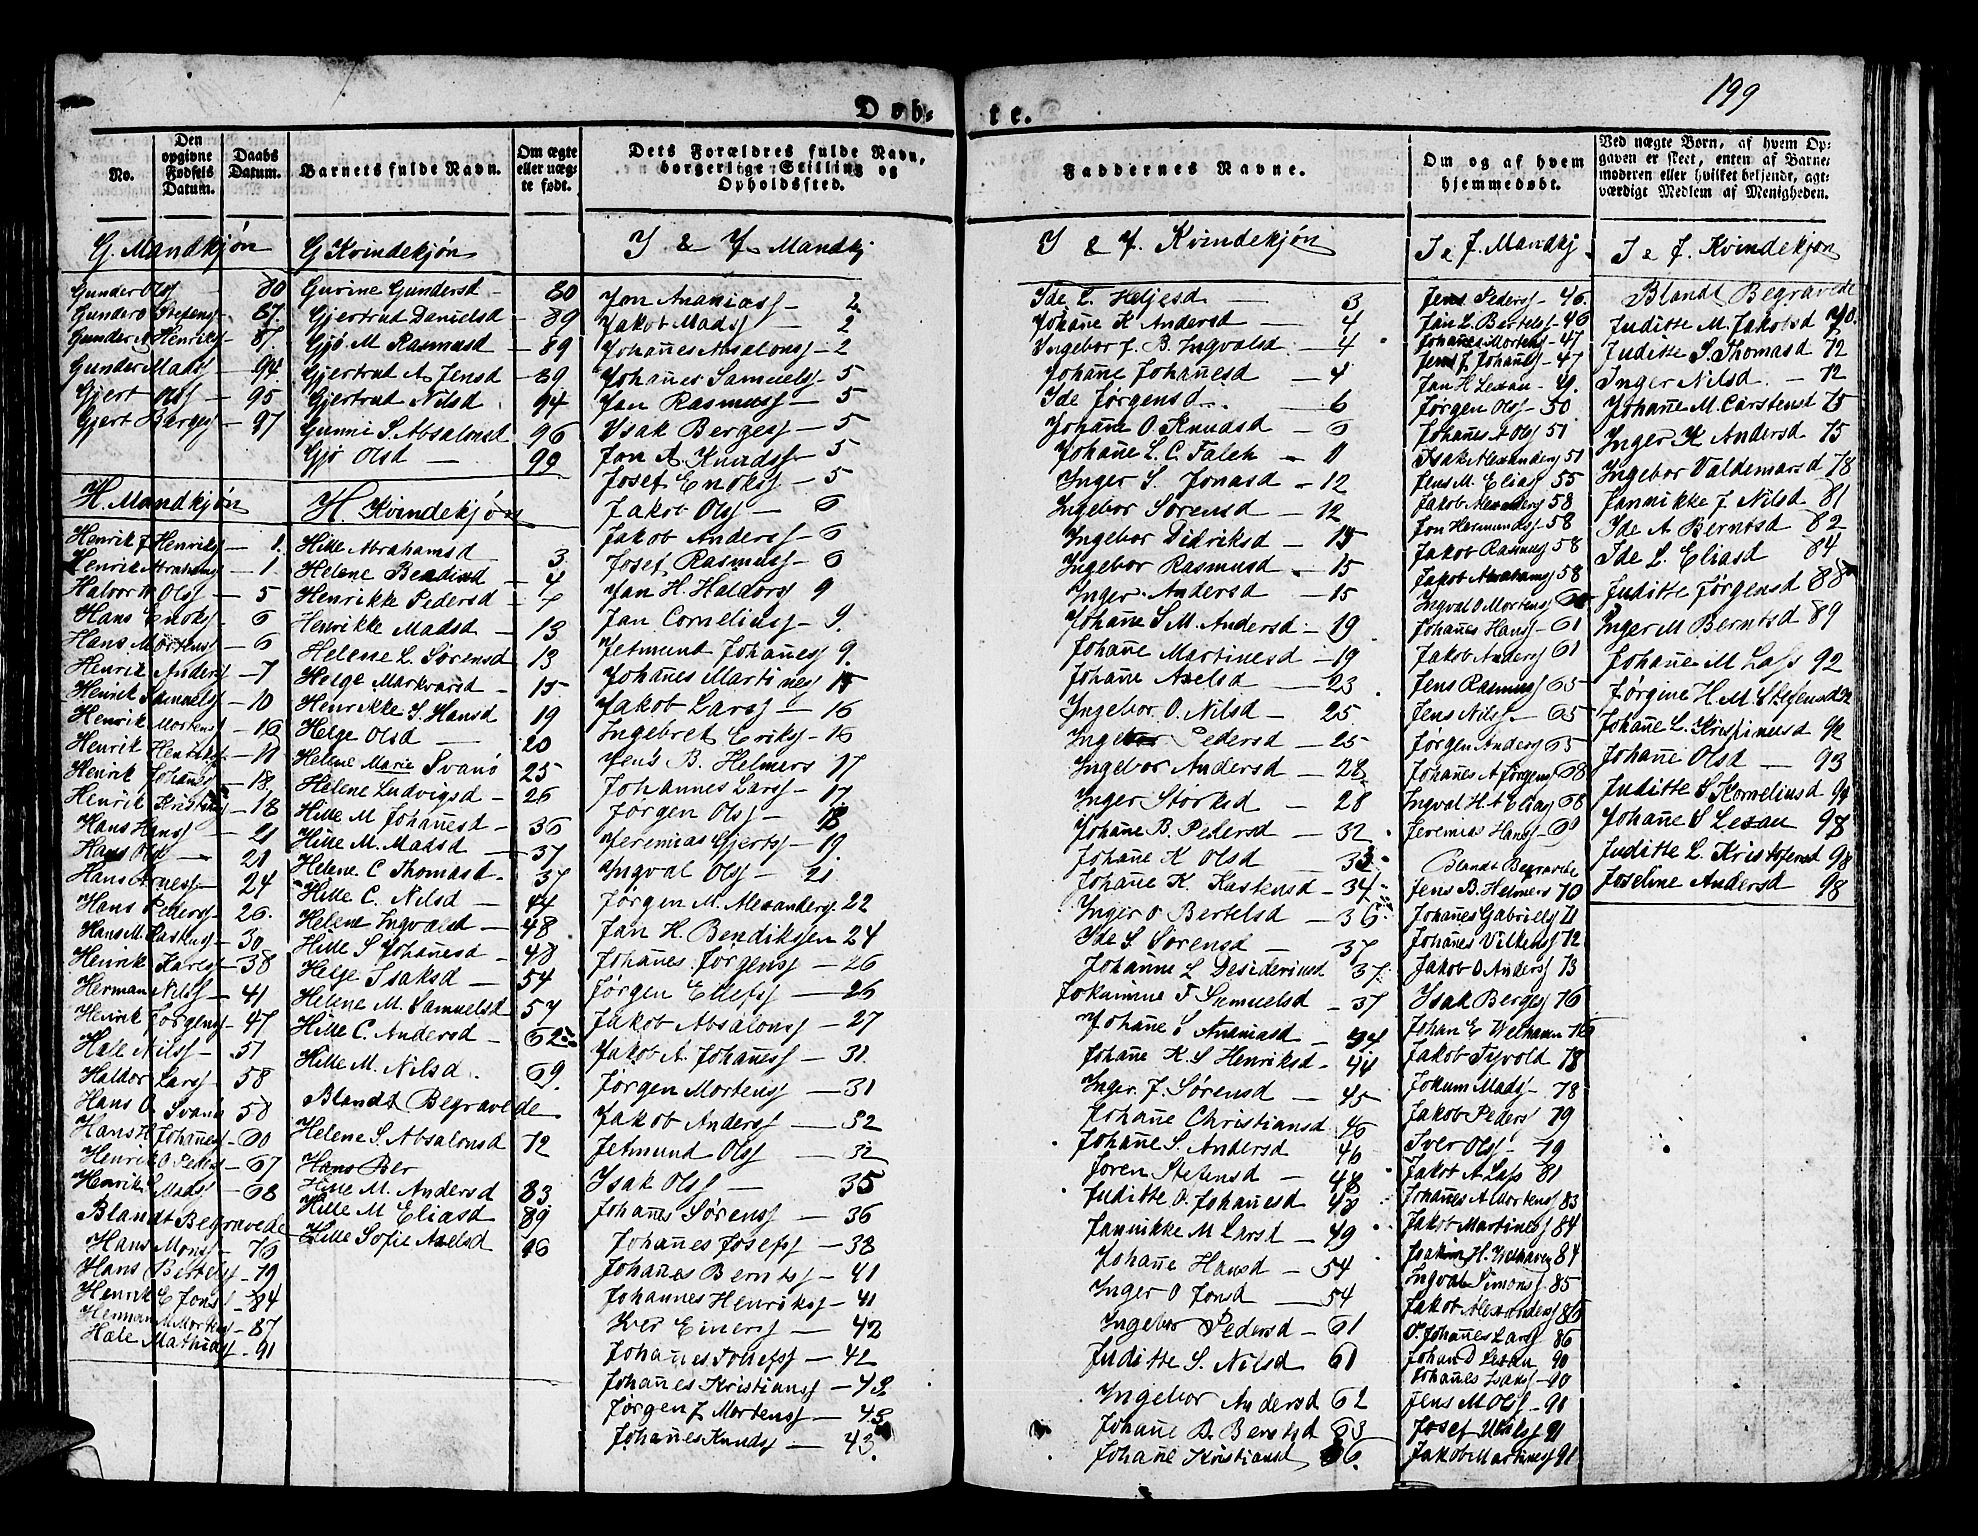 199
Døb-
te.
No.
Den opgivne Fødsels Datum.
Daabs Datum.
Barnets fulde Navn.
Om ægte eller uæg- te født.
Dets Forældres fulde Navn, borgerlige Stilling og Opholdssted.
Faddernes Navne.
Om og af hvem hjemmedøbt.
Ved uægte Børn, af hvem Op- gaven er skeet, enten af Barne- moderen eller hvilket betjende, agt- værdigt Medlem af Menigheden.
G. Mandkjøn
Gunder Olsj 80
Gunder Stefensj - 87.
Gunder A Henriksj - 87.
Gunder Madsj - 94.
Gjert Olsj - 95
Gjert Bergesj - 97
H. Mandkjøn
Henrik J Henriksj - 1.
Henrik Abrahamsj - 1
Halvor Olsj - 5
Hans Enoksj - 6
Hans Mortensj - 6
Henrik Andersj - 7
Henrik Samuelsj - 10
Henrik Mortensj - 16
Henrik Henriksj - 11
Henrik Johansj - 18.
Henrik - 18
Hans Hansj - 21
Hans Olsj - 21
Hans Arnesj - 24
Hans Pedersj - 26.
Hans M. Karstensj - 30
Henrik Laresj - 38
Herman Nilsj - 41
Henrik Jørgensj - 47
Hale Nilsj - 51
Haldor Larsj - 58
Hans O Svanø 58
Hans H Johanesj - 60
Henrik O Pedersj - 67
Henrik Madsj - 68
Blandt Begravede
Hans Monsj - 76
Hans Bertelsj - 79
Henrik E Jonsj - 84
Herman M Mortensj - 87
Hale Mathiasj - 91
G Kvindekjøn
Gurine Gundersd - 80
Gjertrud Danielsd - 89
Gjø M Rasmusd - 89
Gjertrud A Jensd - 89
Gjertrud Nilsd 94
Gunni S. Absalonsd 96
Gjø Olsd - 99
H. Kvindekjøn
Hille Abrahamsd 3
Helene Bendixsd - 4
Henrikke Pedersd - 7
Henrikke Madsd - 13
Helene L. Sørensd 13
Helge Markvarsd - 15
Henrikke S. Hansd 19
Helge Olsd - 20
Helene Marie Svanø 25
Helene Ludvigsd - 26
Hille M Johanesd - 36
Hille M. Madsd - 37
Helene C Thomasd - 37
Hille C. Nilsd - 44
Helene Ingvalsd - 48.
Hille S Johanesd - 48
Helge Isaksd - 54
Helene M. Samuelsd 57
Hille C. Andersd - 62
Hille M. Nilsd. 69.
Blandt Begravede
Helene S. Absalonsd 72
Hans Ber
Hille M. Andersd 83
Hille M Eliasd 89
Hille Sofie Axelsd 96
I & J Mandkj
Jon Ananiasj - 2
Jakob Madsj - 2
Johanes Absalonsj - 2
Johanes Samuelsj - 5
Jan Rasmusj - 5
Isak Bergesj - 5
Jan A. Knudsj - 5
Josef Enoksj - 5
Jakob Olsj - 6
Jakob Andersj - 6
Josef Rasmusj - 6
Jan H. Haldorsj 9
Jan Corneliusj - 9.
Jetmund Johanesj 9.
Johanes Martinesj 15
Jakob Larsj - 16
Ingebret Eriksj - 16
Jens B. Helmers 17
Johannes Larsj - 17
Jørgen Olsj - 18
Jeremias Gjertsj - 19.
Ingval Olsj - 21.
Jørgen M. Alexandersj. 22
Jan H. Bendiksen 24
Johanes Jørgensj - 26
Jørgen Ellefsj - 26
Jakob Absalonsj - 27
Jakob A. Johanesj - 31.
Jørgen Mortensj - 31
Jakob Andersj - 32
Jetmund Olsj - 32
Isak Olsj - 35
Johanes Sørensj - 36
Johanes Josefsj - 38
Johanes Berntsj - 41
Johannes Henriksj - 41
Iver Einersj - 42
Johanes Tollefsj - 42
Johanes Kristiansj - 43
Jørgen J. Mortensj - 43
Johanes Knudsj - 43.
I & J. Kvindekjøn
Ide L. Heljesd - 3
Johane K Andersd - 4
Ingebor J. B. Ingvalsd - 4
Johane Johanesd - 4
Ide Jørgensd - 6
Johane O. Knudsd - 6
Johane L. C. Falch - 11
Inger S. Jonasd - 12
Ingebor Sørensd - 12
Ingebor Didriksd - 15
Ingebor Rasmusd - 15
Inger Andersd - 15
Johane S M. Andersd - 19
Johane Martinesd - 19
Johane Axelsd - 23
Ingebor O. Nilsd - 25
Ingebor Pedersd - 25
Ingebor Andersd - 28
Inger Størksd - 28
Johane B. Pedersd - 32
Johane K Olsd 33
Johane K. Kastensd - 34
Inger O Bertelsd - 36
Ide S Sørensd - 37
Johanne L Desideriusd 37
Jokumine F Samuelsd - 37
Johane S Ananiasd - 44
Johane K. S Henriksd - 44
Inger J. Sørensd - 45
Johane Christiansd. 46
Johane S. Andersd 46
Joren Stefensd - 48
Juditte O. Johanesd 48
Jannikke M Larsd - 49
Johane Hansd - 54
Inger O Jonsd - 54
Ingebor Pedersd - 61
Juditte S. Nilsd 61
Ingebor Andersd 62
Johane B. Berntsd 63
Johane Kristiansd 66.
I & J. Mandkj
Jens Pedersj - 46.
Jan L. Bertelsj - 46
Johanes Mortensj - 47
Jens J. Johanesj - 47
Jan H Lexau - 49.
Jørgen Olsj - 50
Johanes A Olsj 51
Isak Alexandersj 51
Jens M. Eliasj 55
Jakob Alexandersj 58
Jon Hermundsj 58
Jakob Rasmusj 58
Jakob Abrahamsj 58
Ingval O Mortensj 60
Johanes Hansj - 61
Jakob Andersj 61
Jens Rasmusj 65
Jens Nilsj - 65
Jørgen Andersj 65
Johanes A Jørgensj 68
Ingval H A Eliasj 68
Jeremias Hansj - 69
Blandt Begravede
Jens B. Helmers 70
Johanes Gabrielsj 71
Johanes Vilkensj 72
Jakob O Andersj 73
Isak Bergesj 76
Johan E Welhaven 76
Jakob Tyvold 78
Jokum Madsj - 78
Jakob Peders 79
Iver Olsj - 79
Jakob A Lass 81
Johanes A Mortensj 83
Jakob Martinesj 84
Joakim H. Welhaven 84
Ingvald Simonsj 85
Jakob Alexandersj 86
O. Johanes Larsj 86
Johan D Lexau 90
Johanes Isaksj - 90
Jens M Olsj - 91
Josef Nilsj 91
Jakob Martinesj 91
I & J. Kvindekjøn
Blandt Begravede
Juditte M Jakobsd 70.
Juditte S Thomasd 72
Inger Nilsd. - 72
Johane M. Carstensd 75
Inger K Andersd 75
Ingebor Valdemarsd 78
Jannikke J Nilsd 81
Ide A Berntsd 82
Ide L. Eliasd 84
Juditte Jørgensd 88
Inger M Berntsd 89
Johane M Lass 92
Jørgine H. M. Stefensd 92
Johane L. Krispinusd 92
Johane Olsd - 93
Juditte S Korneliusd 94
Johane S Lexau 98
Juditte L. Kristofensd 98
Joseline Andersd 98